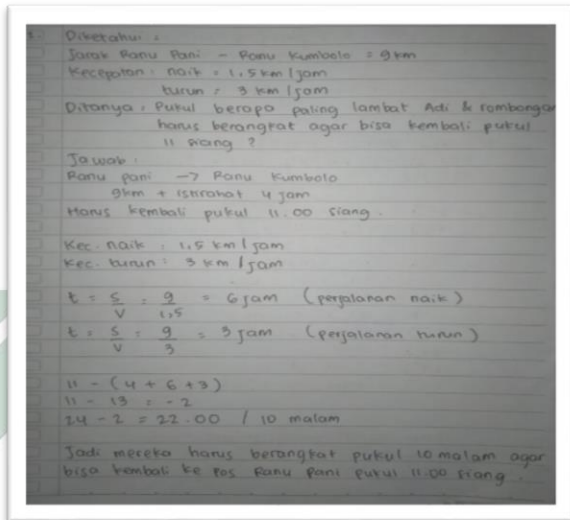 Diketahui :
Jarak Ranu Pani - Ranu Kumbolo = 9 km
Kecepatan : naik = 1,5 km / jam
turun = 3 km / jam
Ditanya : Pukul berapa paling lambat Adi & rombongan
harus berangkat agar bisa kembali pukul
11 siang ?
Jawab :
Ranu pani → Ranu Kumbolo
9km + istirahat 4 jam
Harus kembali pukul 11.00 siang.
Kec. naik : 1,5 km / jam
Kec. turun : 3 km / jam
t = s/v = 9/1,5 = 6 jam (perjalanan naik)
t = s/v = 9/3 = 3 jam (perjalanan turun)
11 - (4 + 6 + 3)
11 - 13 = - 2
24 - 2 = 22.00 / 10 malam
Jadi mereka harus berangkat pukul 10 malam agar
bisa kembali ke pos Ranu Pani pukul 11.00 siang.